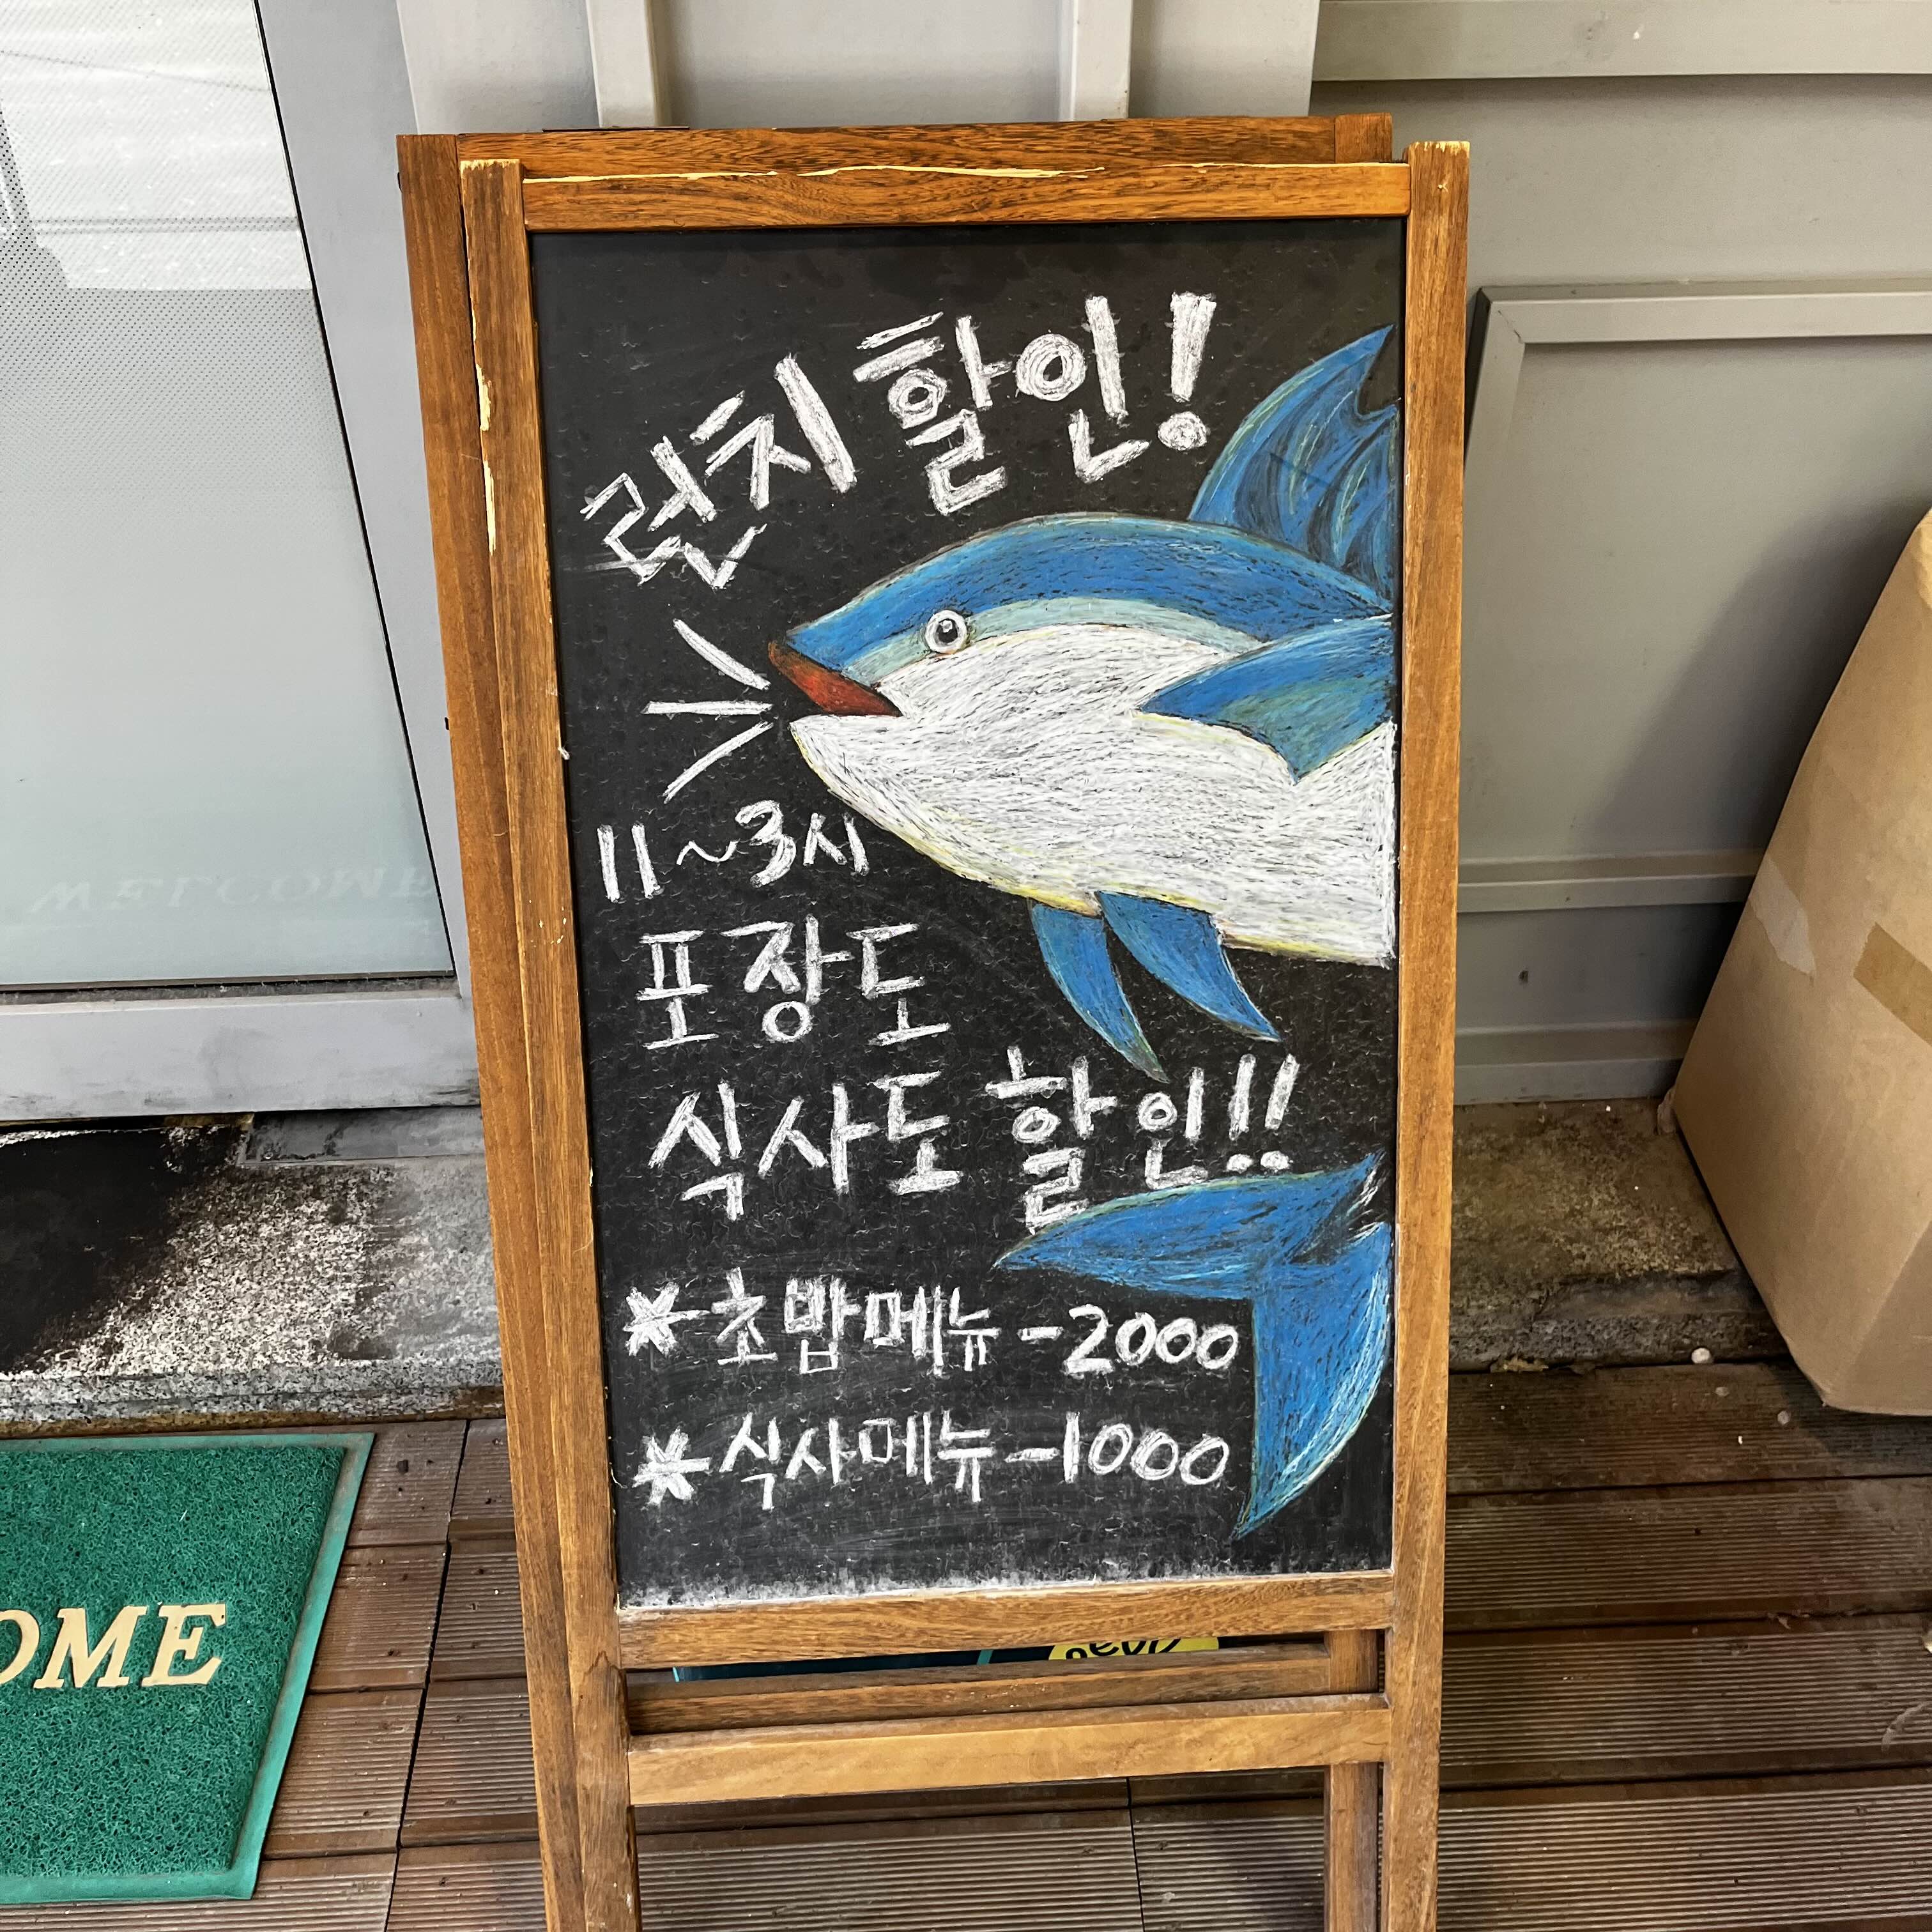 런치 할인!
11~3시
포장도
식사도 할인!!
* 초밥메뉴 -2000
* 식사메뉴 -1000
WELCOME
OME